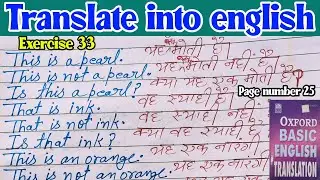 Translate into english
Exercise 33
This is a pearl. यह मोती है।
This is not a pearl. यह मोती नहीं है।
Is this a pearl? क्या यह एक मोती है?
Page number 25
That is ink. वह स्याही है।
That is not ink. वह स्याही नहीं
Is that ink? क्या वह स्याही है
This is an orange. यह एक नारंगी
This is not an orange.
OXFORD
BASIC
ENGLISH
TRANSLATION